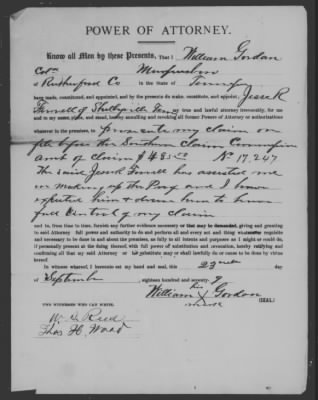 POWER OF ATTORNEY.
Know all Men by these Presents, That I William Gordon
Cold Murfreesboro
of Rutherford Co in the State of Tenn
have made, constituted, and appointed, and by the presents do make, constitute, and appoint, Jesse R
Ferrell of Shelbyville Ten, my true and lawful attorney, irrevocably, for me
and in my name, place, and stead, hereby annulling and revoking all former Powers of Attorney or authorizations
whatever in the premises, to prosecute my claim on
file before the Southern Claim Commission
amt of claim $485.00 No 17,247
The said Jesse R Ferrell has assisted me
in making up the and I have
him & desire him to have
full Control of my claim
and to, from time to time, furnish any further evidence necessary or that may be demanded, giving and granting
to said Attorney full power and authority to do and perform all and every act and thing whatsoever requisite
and necessary to be done in and about the premises, as fully to all intents and purposes as I might or could do,
if personally present at the doing thereof, with full power of substitution and revocation, hereby ratifying and
confirming all that my said Attorney or his substitute may or shall lawfully do or cause to be done by virtue
hereof.
In witness whereof, I hereunto set my hand and seal, this 23rd day
of September, eighteen hundred and seventy-9
his
William X Gordon (SEAL)
mark
TWO WITNESSES WHO CAN WRITE.
W. B. Reed
Thos H. Wood